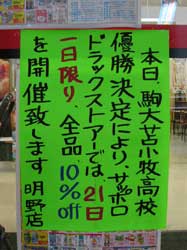 本日、駒大苫小牧高校
優勝決定により、サッポロ
ドラックストアーでは、21日
一日限り、全品、10%off
を開催致します 明野店